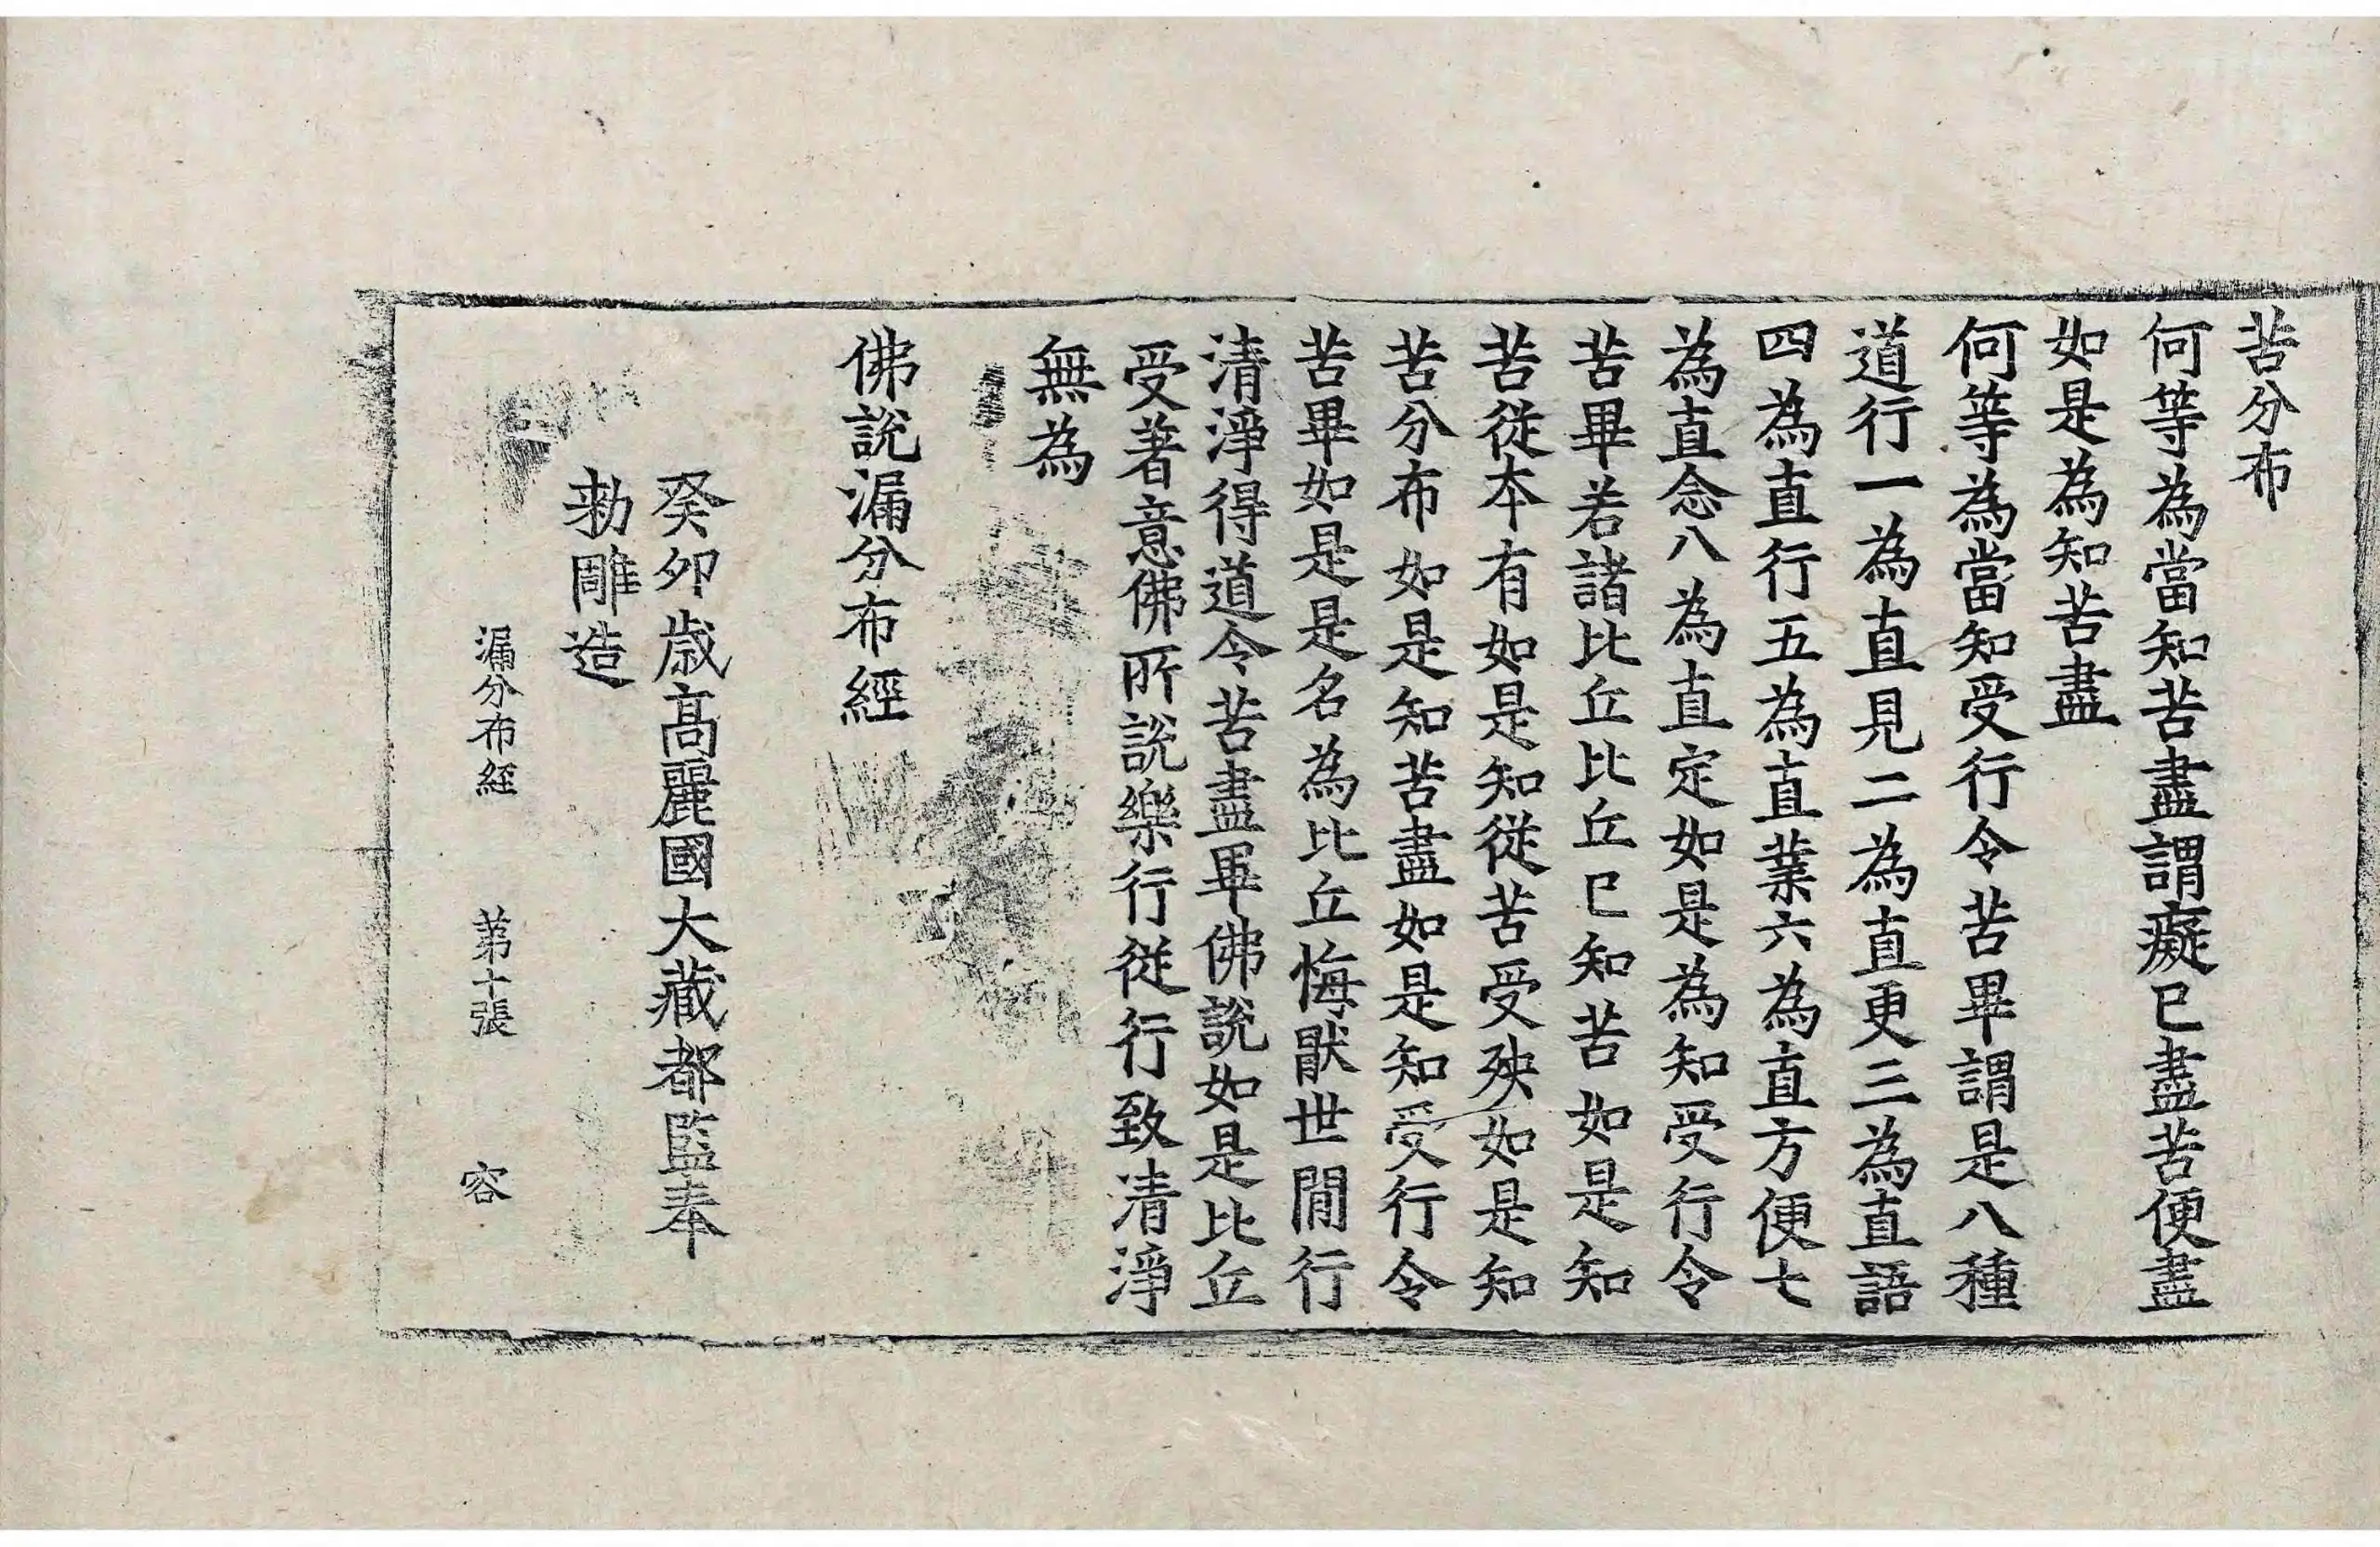 苦分布
何等為當知苦盡謂癡已盡苦便盡
如是為知苦盡
何等為當知受行令苦畢謂是八種
道行一為直見二為直更三為直語
四為直行五為直業六為直方便七
為直念八為直定如是為知受行令
苦畢若諸比丘比丘已知苦如是知
苦從本有如是知從苦受殃如是知
苦分布如是知苦盡如是知受行令
苦畢如是是名為比丘悔猒世閒行
清淨得道令苦盡畢佛說如是比丘
受著意佛所說樂行從行致清淨
無為
佛說漏分布經
癸卯歲高麗國大藏都監奉
勑雕造
漏分布經 第十張 容